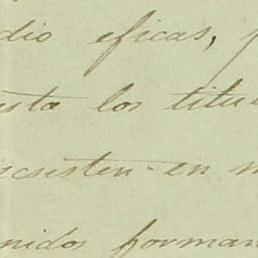 dio eficas, p
sta los titu
csisten en
nidos forman